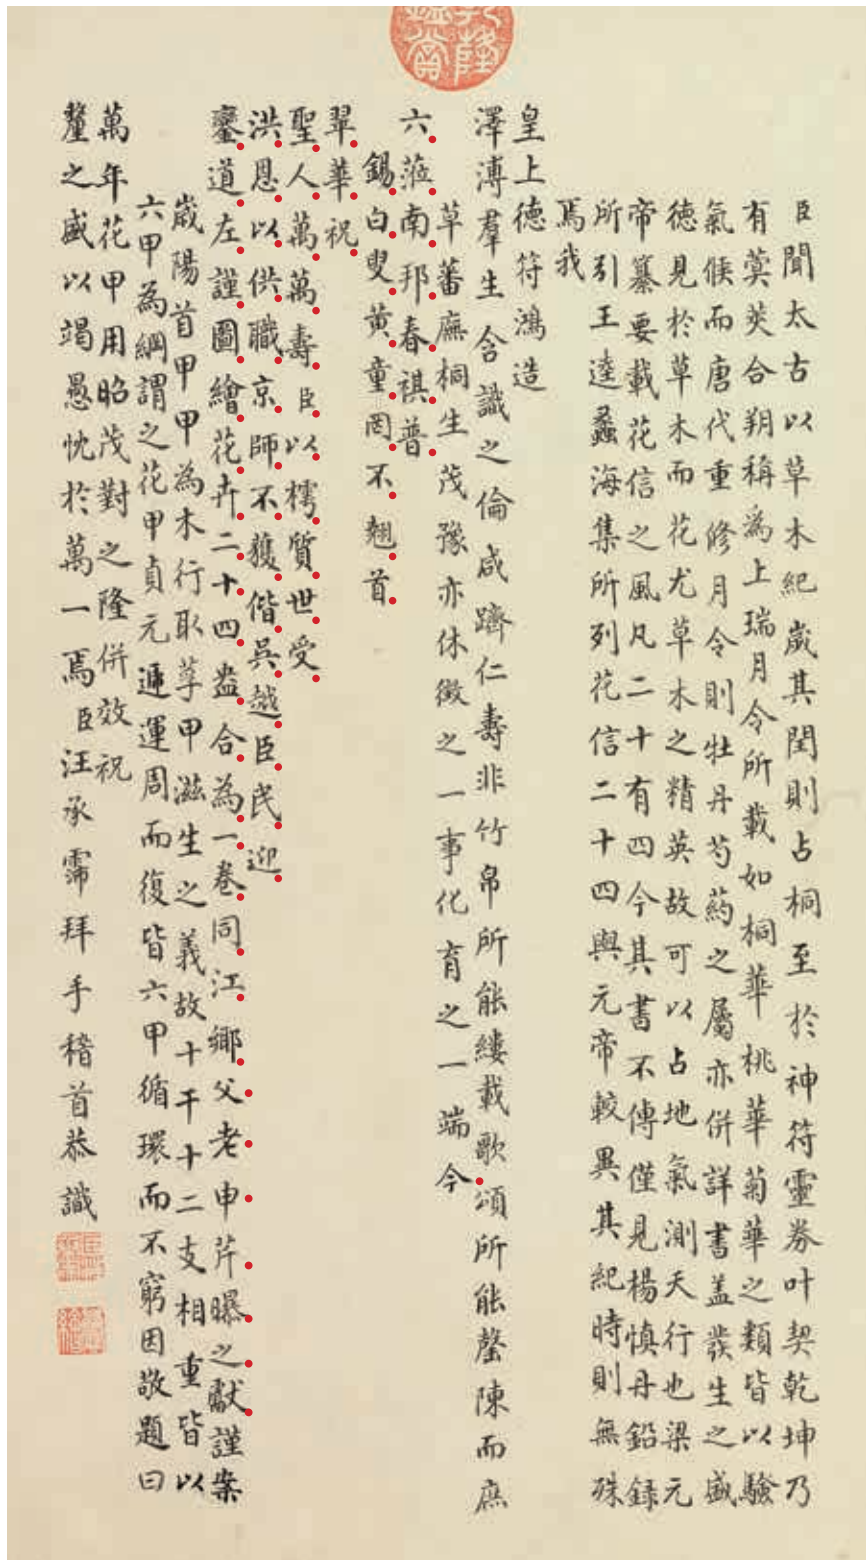 臣聞太古以草木紀歲其閏則占桐至於神符靈券叶契乾坤乃
有蓂莢合朔稱為上瑞月令所載如桐華桃華菊華之類皆以驗
氣候而唐代重修月令則牡丹芍藥之屬亦併詳書蓋發生之盛
德見於草木而花尤草木之精英故可以占地氣測天行也梁元
帝纂要載花信之風凡二十有四今其書不傳僅見楊慎丹鉛錄
所引王逵蠡海集所列花信二十四與元帝較異其紀時則無殊
焉我
皇上德符鴻造
澤溥羣生含識之倫咸躋仁壽非竹帛所能縷載歌頌所能罄陳而庶
草蕃廡桐生茂豫亦休徵之一事化育之一端今
六蒞南邦春祺普
錫白叟黃童罔不翹首
翠華祝
聖人萬萬壽臣以樗質世受
洪恩以供職京師不獲偕吳越臣民迎
鑾道左謹圖繪花卉二十四盎合為一卷同江鄉父老申芹曝之獻謹案
歲陽首甲甲為木行取莩甲滋生之義故十干十二支相重皆以
六甲為綱謂之花甲貞元遞運周而復皆六甲循環而不窮因敬題曰
萬年花甲用昭茂對之隆併效祝
釐之盛以竭愚忱於萬一焉臣汪承霈拜手稽首恭識
乾隆鑑賞